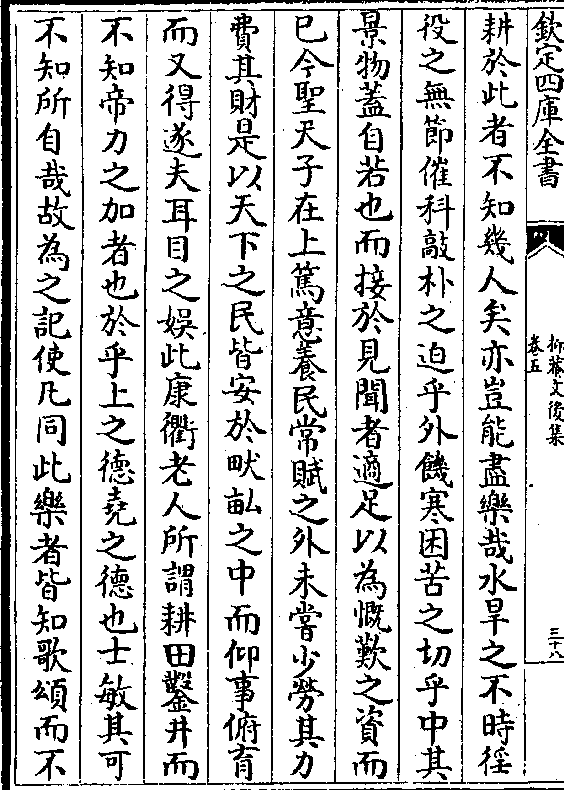 欽定四庫全書
抑菴文後集
卷五
三十八
耕於此者不知幾人矣亦豈能盡樂哉水旱之不時徭
役之無節催科敲朴之迫乎外饑寒困苦之切乎中其
景物蓋自若也而接於見聞者適足以為慨歎之資而
已今聖天子在上篤意養民常賦之外未嘗少勞其力
費其財是以天下之民皆安於畎畝之中而仰事俯育
而又得遂夫耳目之娯此康衢老人所謂耕田鑿井而
不知帝力之加者也於乎上之德堯之德也士敏其可
不知所自哉故為之記使凡同此樂者皆知歌頌而不